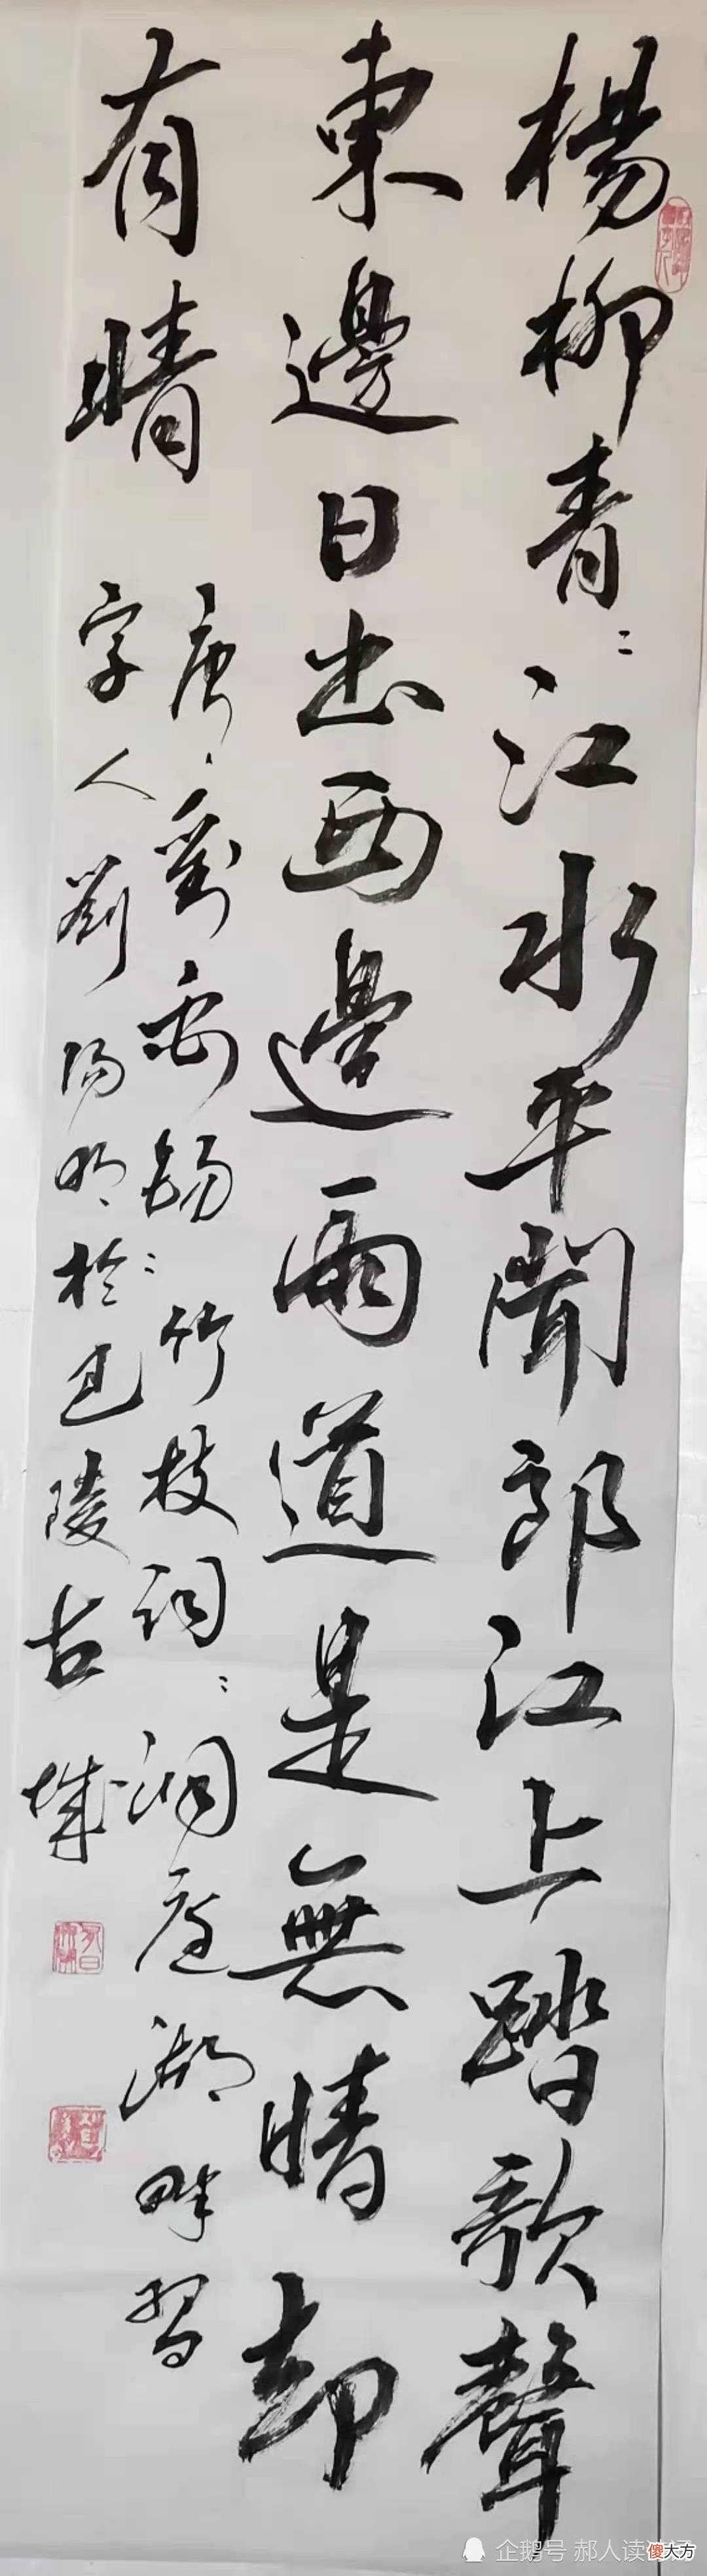 楊柳青〻江水平聞郎江上踏歌聲
東邊日出西邊雨道是無晴却
有晴
唐劉禹錫竹枝詞洞庭湖畔習
字人劉陽明於巴陵古城
企鹅号 郝人读
傻大方